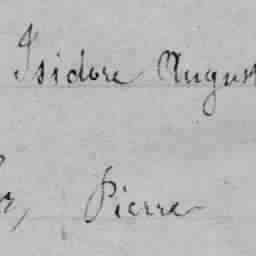 Isidore August
Pierre